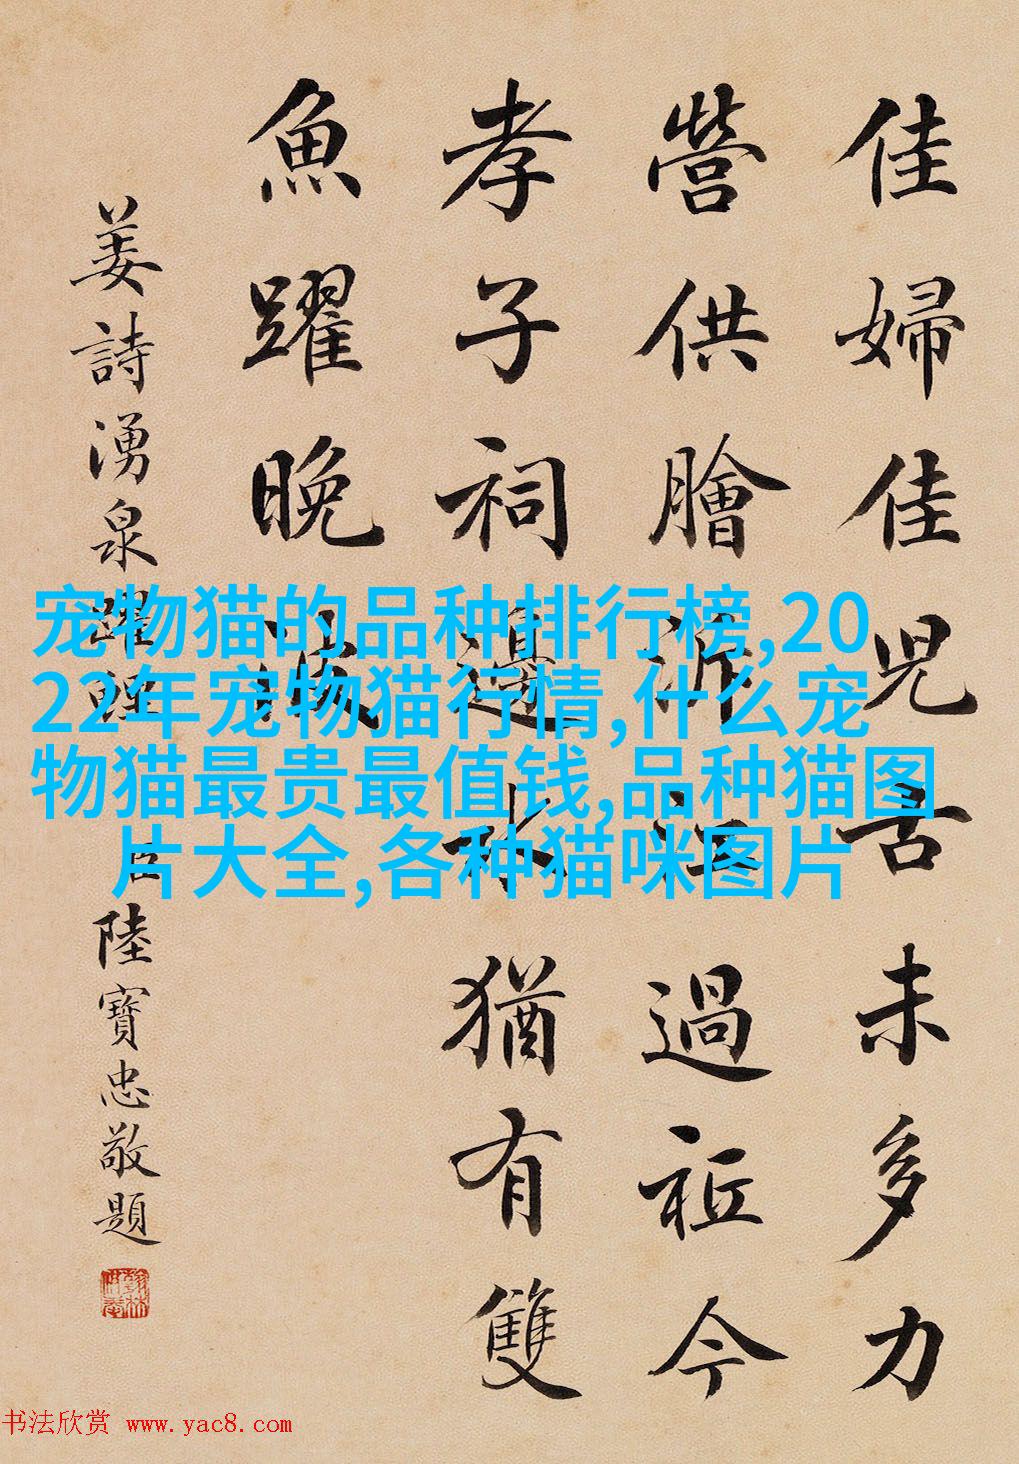 佳婦佳兒古未多力
營供膾泝江過祗今
孝子祠邊水猶有雙
魚躍晚波
姜詩湧泉躍鯉
臣陸寶忠敬題
宠物猫的品种排行榜,20
22年宠物猫行情,什么宠
物猫最贵最值钱,品种猫图
片大全,各种猫咪图片
书法欣赏 www.yac8.com